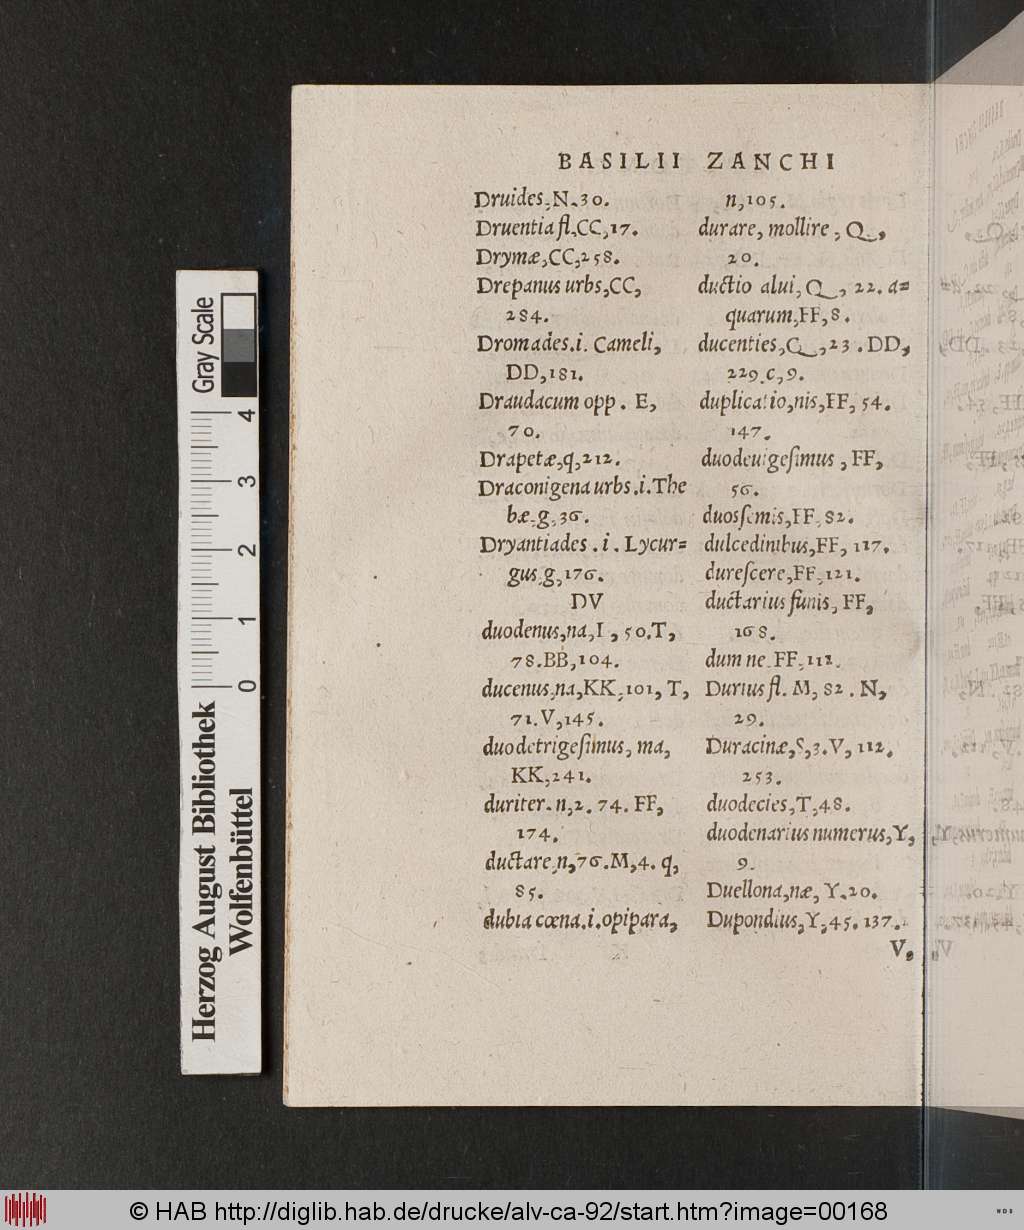 BASILII ZANCHI
Druides, N. 30.
Druentia fl, CC, 17.
Drymæ, CC, 258.
Drepanus urbs, CC,
284.
Dromades .i. Cameli,
DD, 181.
Draudacum opp. E,
70.
Drapetæ, q, 212.
Draconigena urbs .i. The
bæ. g. 36.
Dryantiades .i. Lycur=
gus. g, 176.
DV
duodenus, na, I, 50. T,
78. BB, 104.
ducenus, na, KK, 101, T,
71. V, 145.
duodetrigeſimus, ma,
KK, 241.
duriter. n, 2. 74. FF,
174.
ductare, n, 76. M, 4. q,
85.
dubia cœna .i. opipara,
n, 105.
durare, mollire, Q,
20.
ductio alui, Q, 22. a=
quarum, FF, 8.
ducenties, Q, 23. DD,
229. c, 9.
duplicatio, nis, FF, 54.
147.
duodeuigeſimus, FF,
56.
duosſemis, FF, 82.
dulcedinibus, FF, 117.
dureſcere, FF, 121.
ductarius funis, FF,
168.
dum ne. FF, 112.
Durius fl. M, 82. N,
29.
Duracinæ, S, 3. V, 112.
253.
duodecies, T, 48.
duodenarius numerus, Y,
9.
Duellona, næ, Y. 20.
Dupondius, Y, 45. 137.
V,
Gray Scale
4
3
2
1
0
Herzog August Bibliothek
Wolfenbüttel
© HAB http://diglib.hab.de/drucke/alv-ca-92/start.htm?image=00168